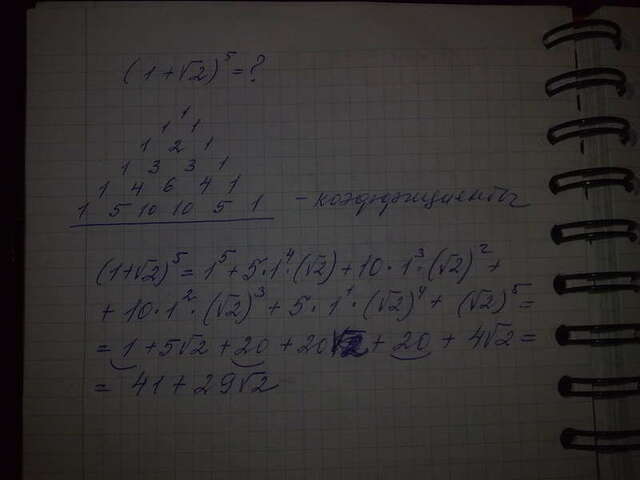 (1+√2)⁵=?
1
1 1
1 2 1
1 3 3 1
1 4 6 4 1
1 5 10 10 5 1 – коэффициенты
(1+√2)⁵ = 1⁵+5·1⁴·(√2)+10·1³·(√2)²+
+10·1²·(√2)³+5·1¹·(√2)⁴+(√2)⁵=
=1+5√2+20+20√2+20+4√2=
=41+29√2